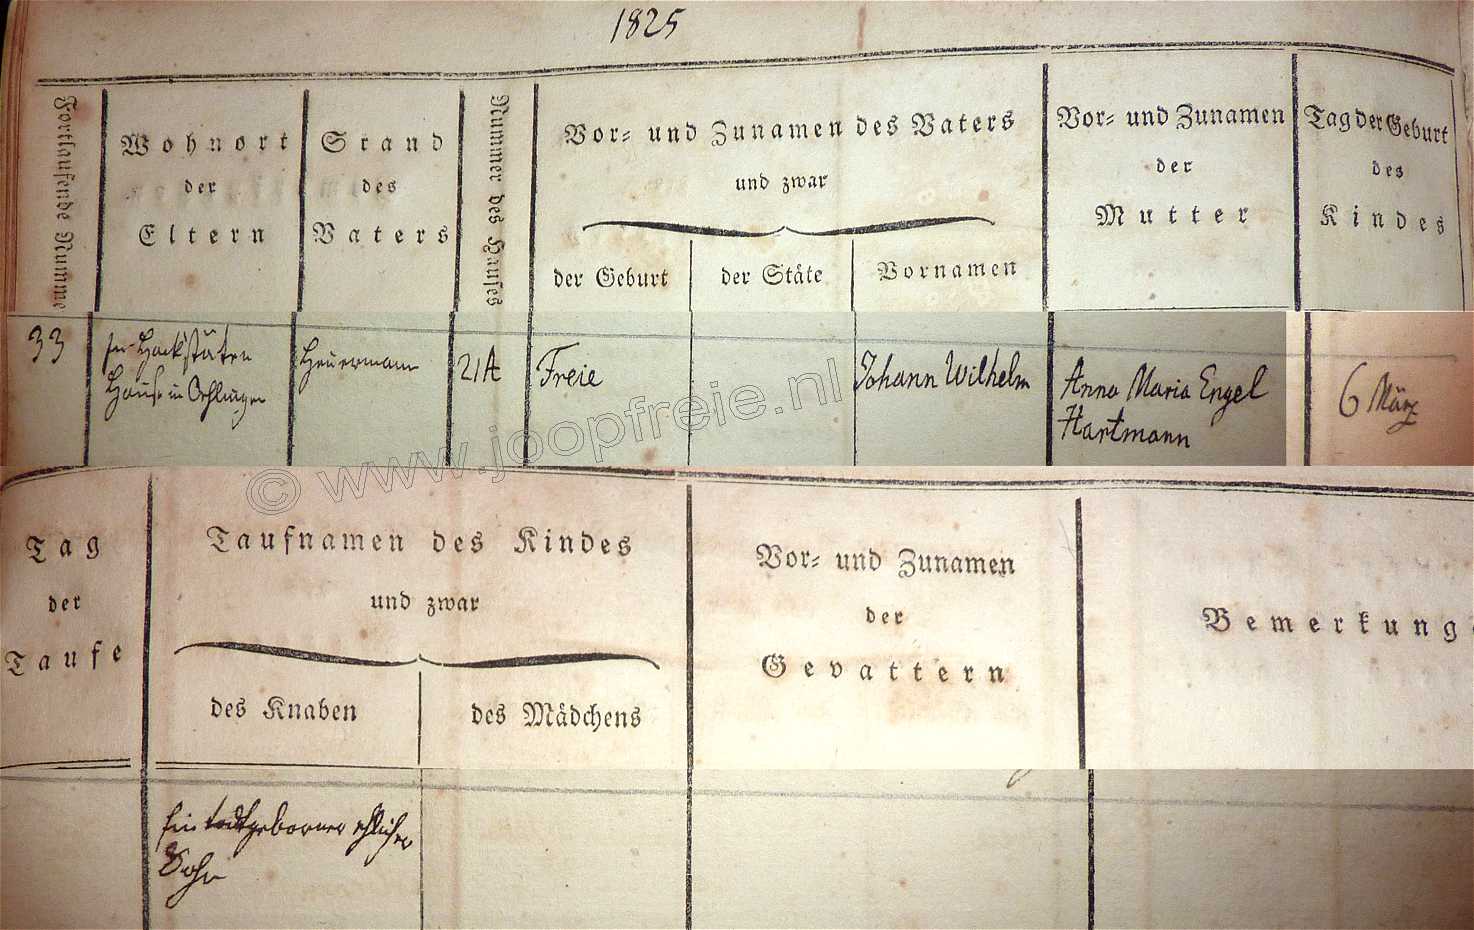 1825
Fortlaufende Numme
Wohnort
der
Eltern
Stand
des
Vaters
Nummer des Hauses
Vor- und Zunamen des Vaters
und zwar
der Geburt
der Stäte
Vornamen
Vor- und Zunamen
der
Mutter
Tag der Geburt
des
Kindes
33
Hackstäten
Hause in Oehlingen
Heuermann
21A
Freie
Johann Wilhelm
Anna Maria Engel
Hartmann
6 März
© www.joopfreie.nl
Tag
der
Taufe
Taufnamen des Kindes
und zwar
des Knaben
des Mädchens
Vor- und Zunamen
der
Gevattern
Bemerkung
Ein todtgeborner ehlicher
Sohn